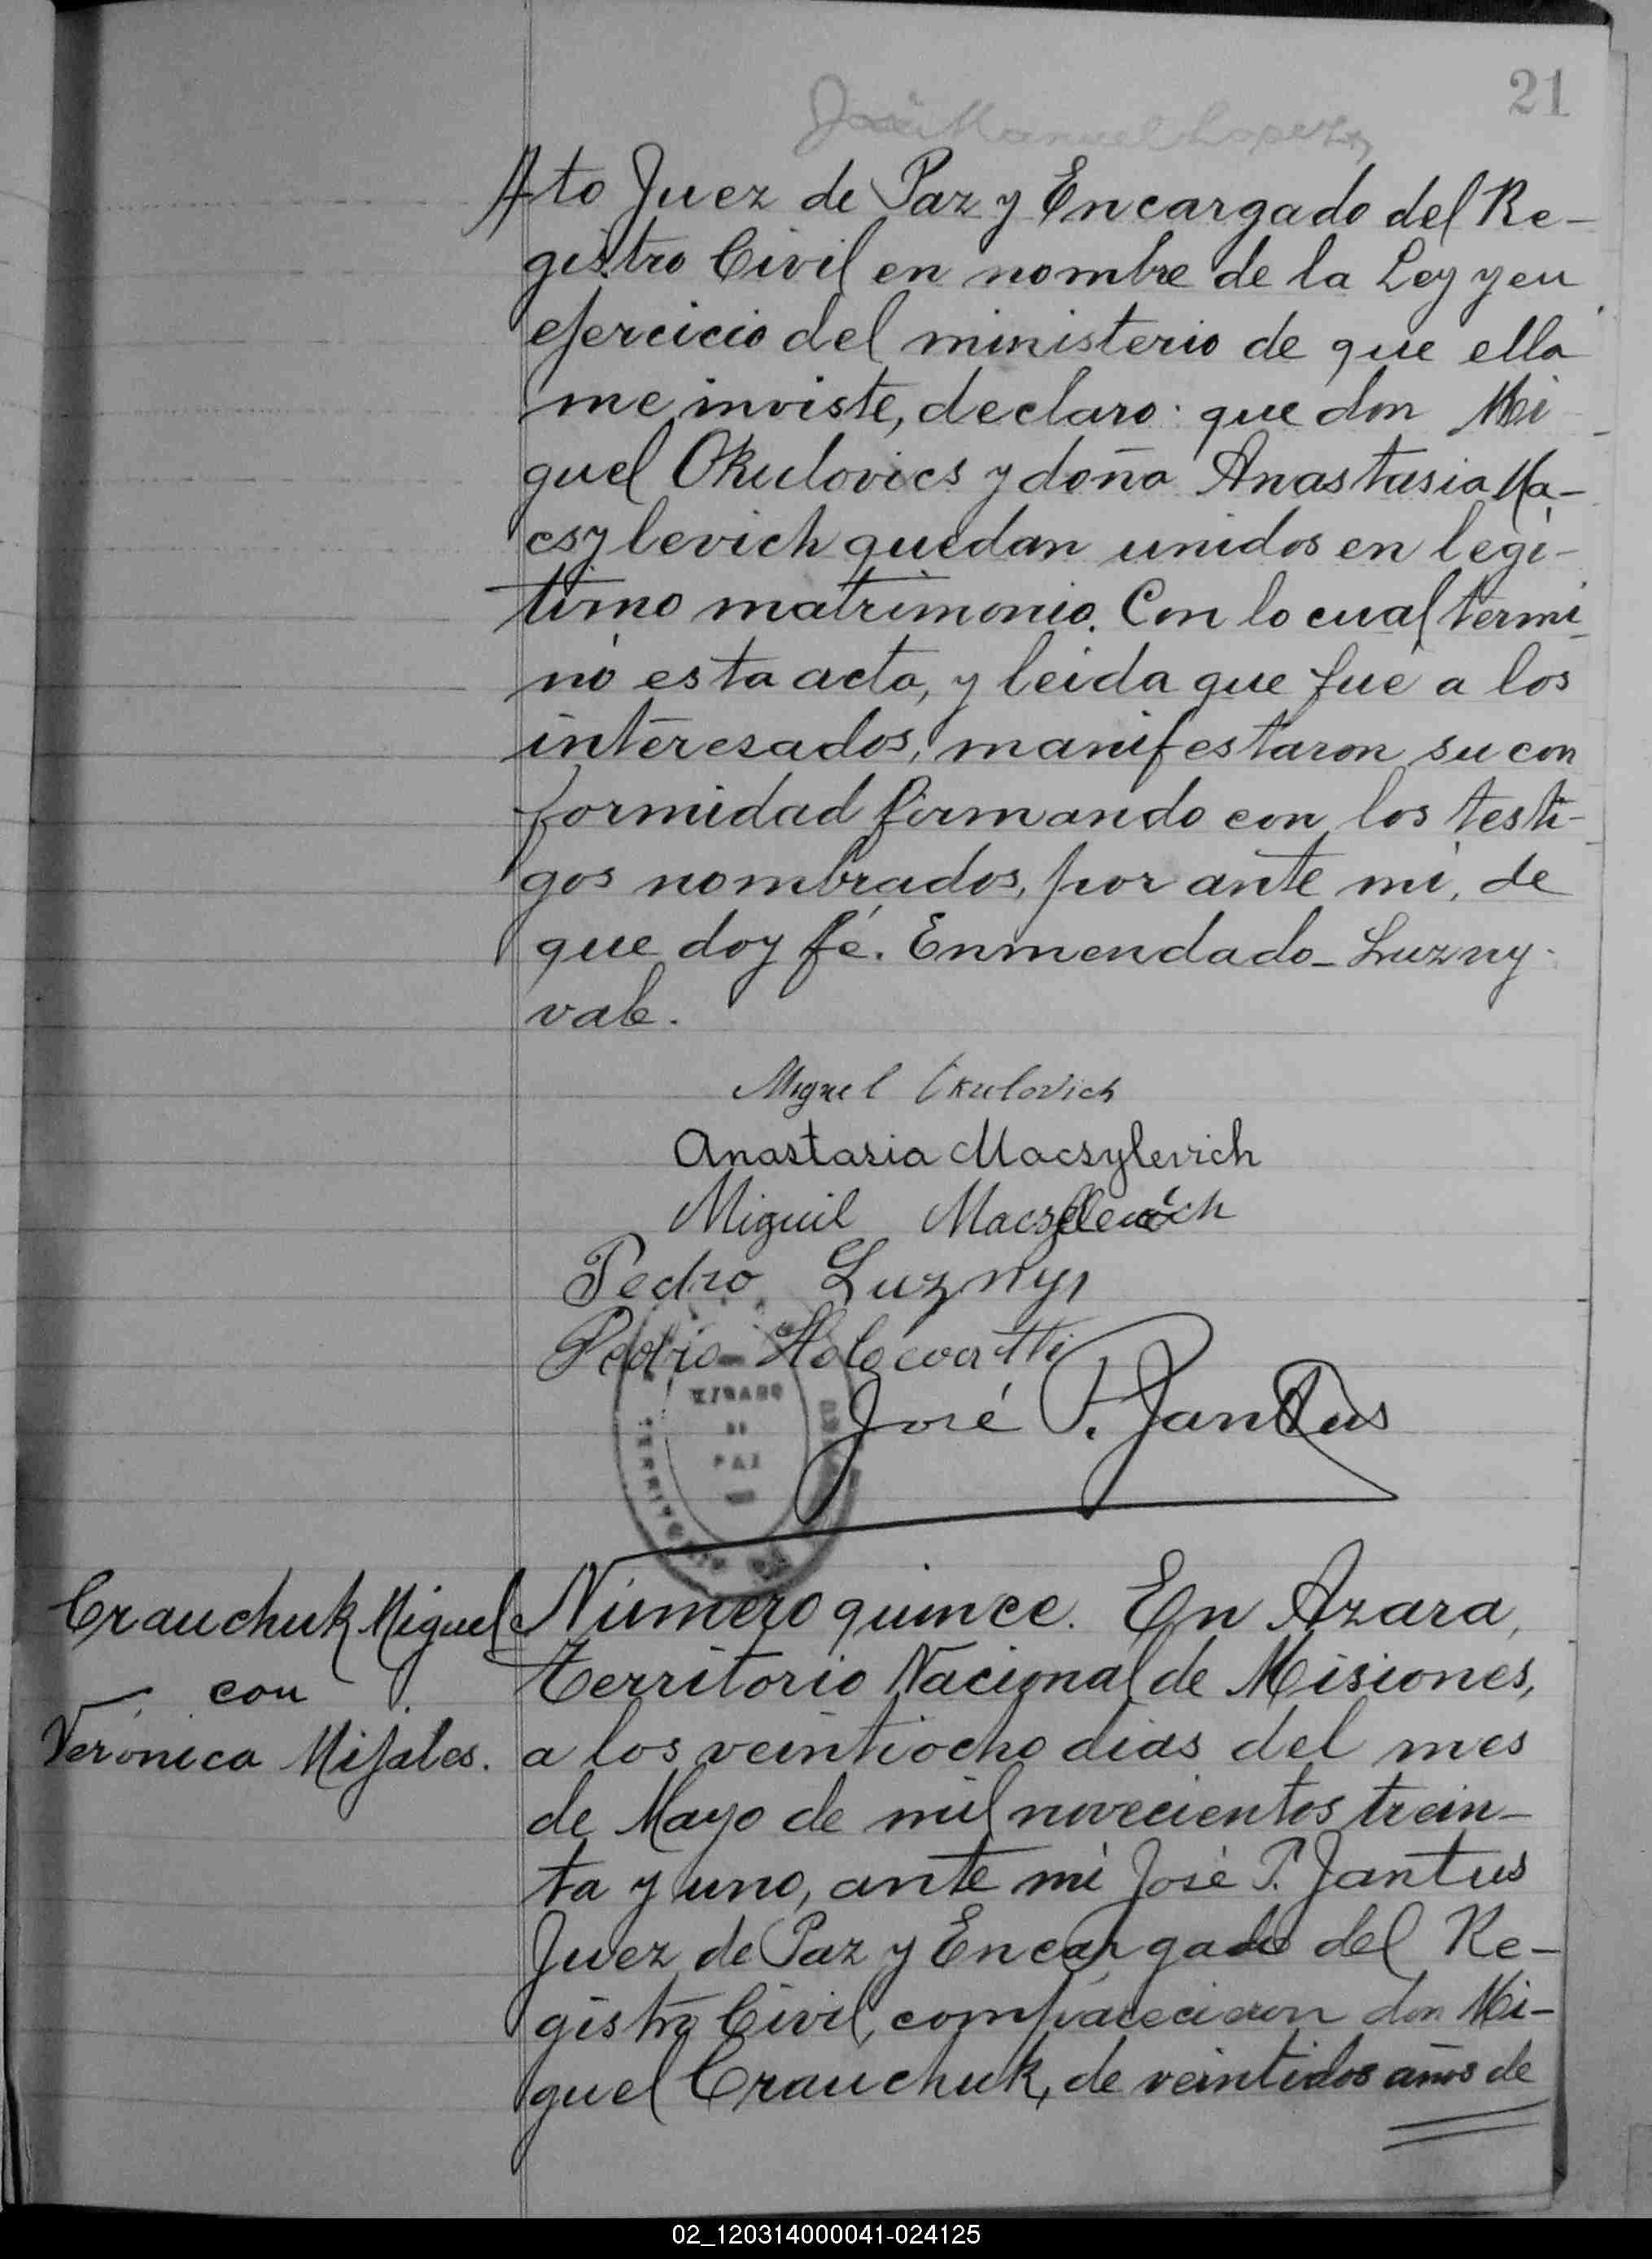 21
José Manuel Lopez
Ato Juez de Paz y Encargado del Re-
gistro Civil en nombre de la Ley y en
ejercicio del ministerio de que ella
me inviste, declaro: que don Mi-
guel Okulovics y doña Anastasia Ma-
csylevich quedan unidos en legi-
timo matrimonio. Con lo cual termi-
nó esta acta, y leida que fué a los
interesados, manifestaron su con
formidad firmando con los testi-
gos nombrados, por ante mi, de
que doy fé. Enmendado- Luzny-
vale.
Miguel Okulovich
Anastasia Macsylevich
Miguil
Pedro Luzny
Pedro
JUZGADO
DE
PAZ
TERRITORIO
José P. Jantus
Crauchuk Miguel
con
Verónica Mijales.
Número quince. En Azara,
Territorio Nacional de Misiones,
a los veintiocho dias del mes
de Mayo de mil novecientos trein-
ta y uno, ante mi José P. Jantus
Juez de Paz y Encargado del Re-
gistro Civil, comparecieron don Mi-
guel Crauchuk, de veintidos años de
02_120314000041-024125